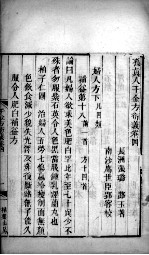 孫真人千金方衍義卷四
長洲張璐 路玉著
南沙席世臣郢客校
婦人方下 凡四類
補益第十八 論一首 方十四首
論曰凡婦人欲求美色肥白罕比年至七十與少不
殊者勿服紫石英令人色黑當服鍾乳澤蘭丸也
柏子仁圓 治婦人五勞七傷羸冷瘦削面無顏
色飲食減少貌失光澤及產後斷緒無子能久
服令人肥白補益方